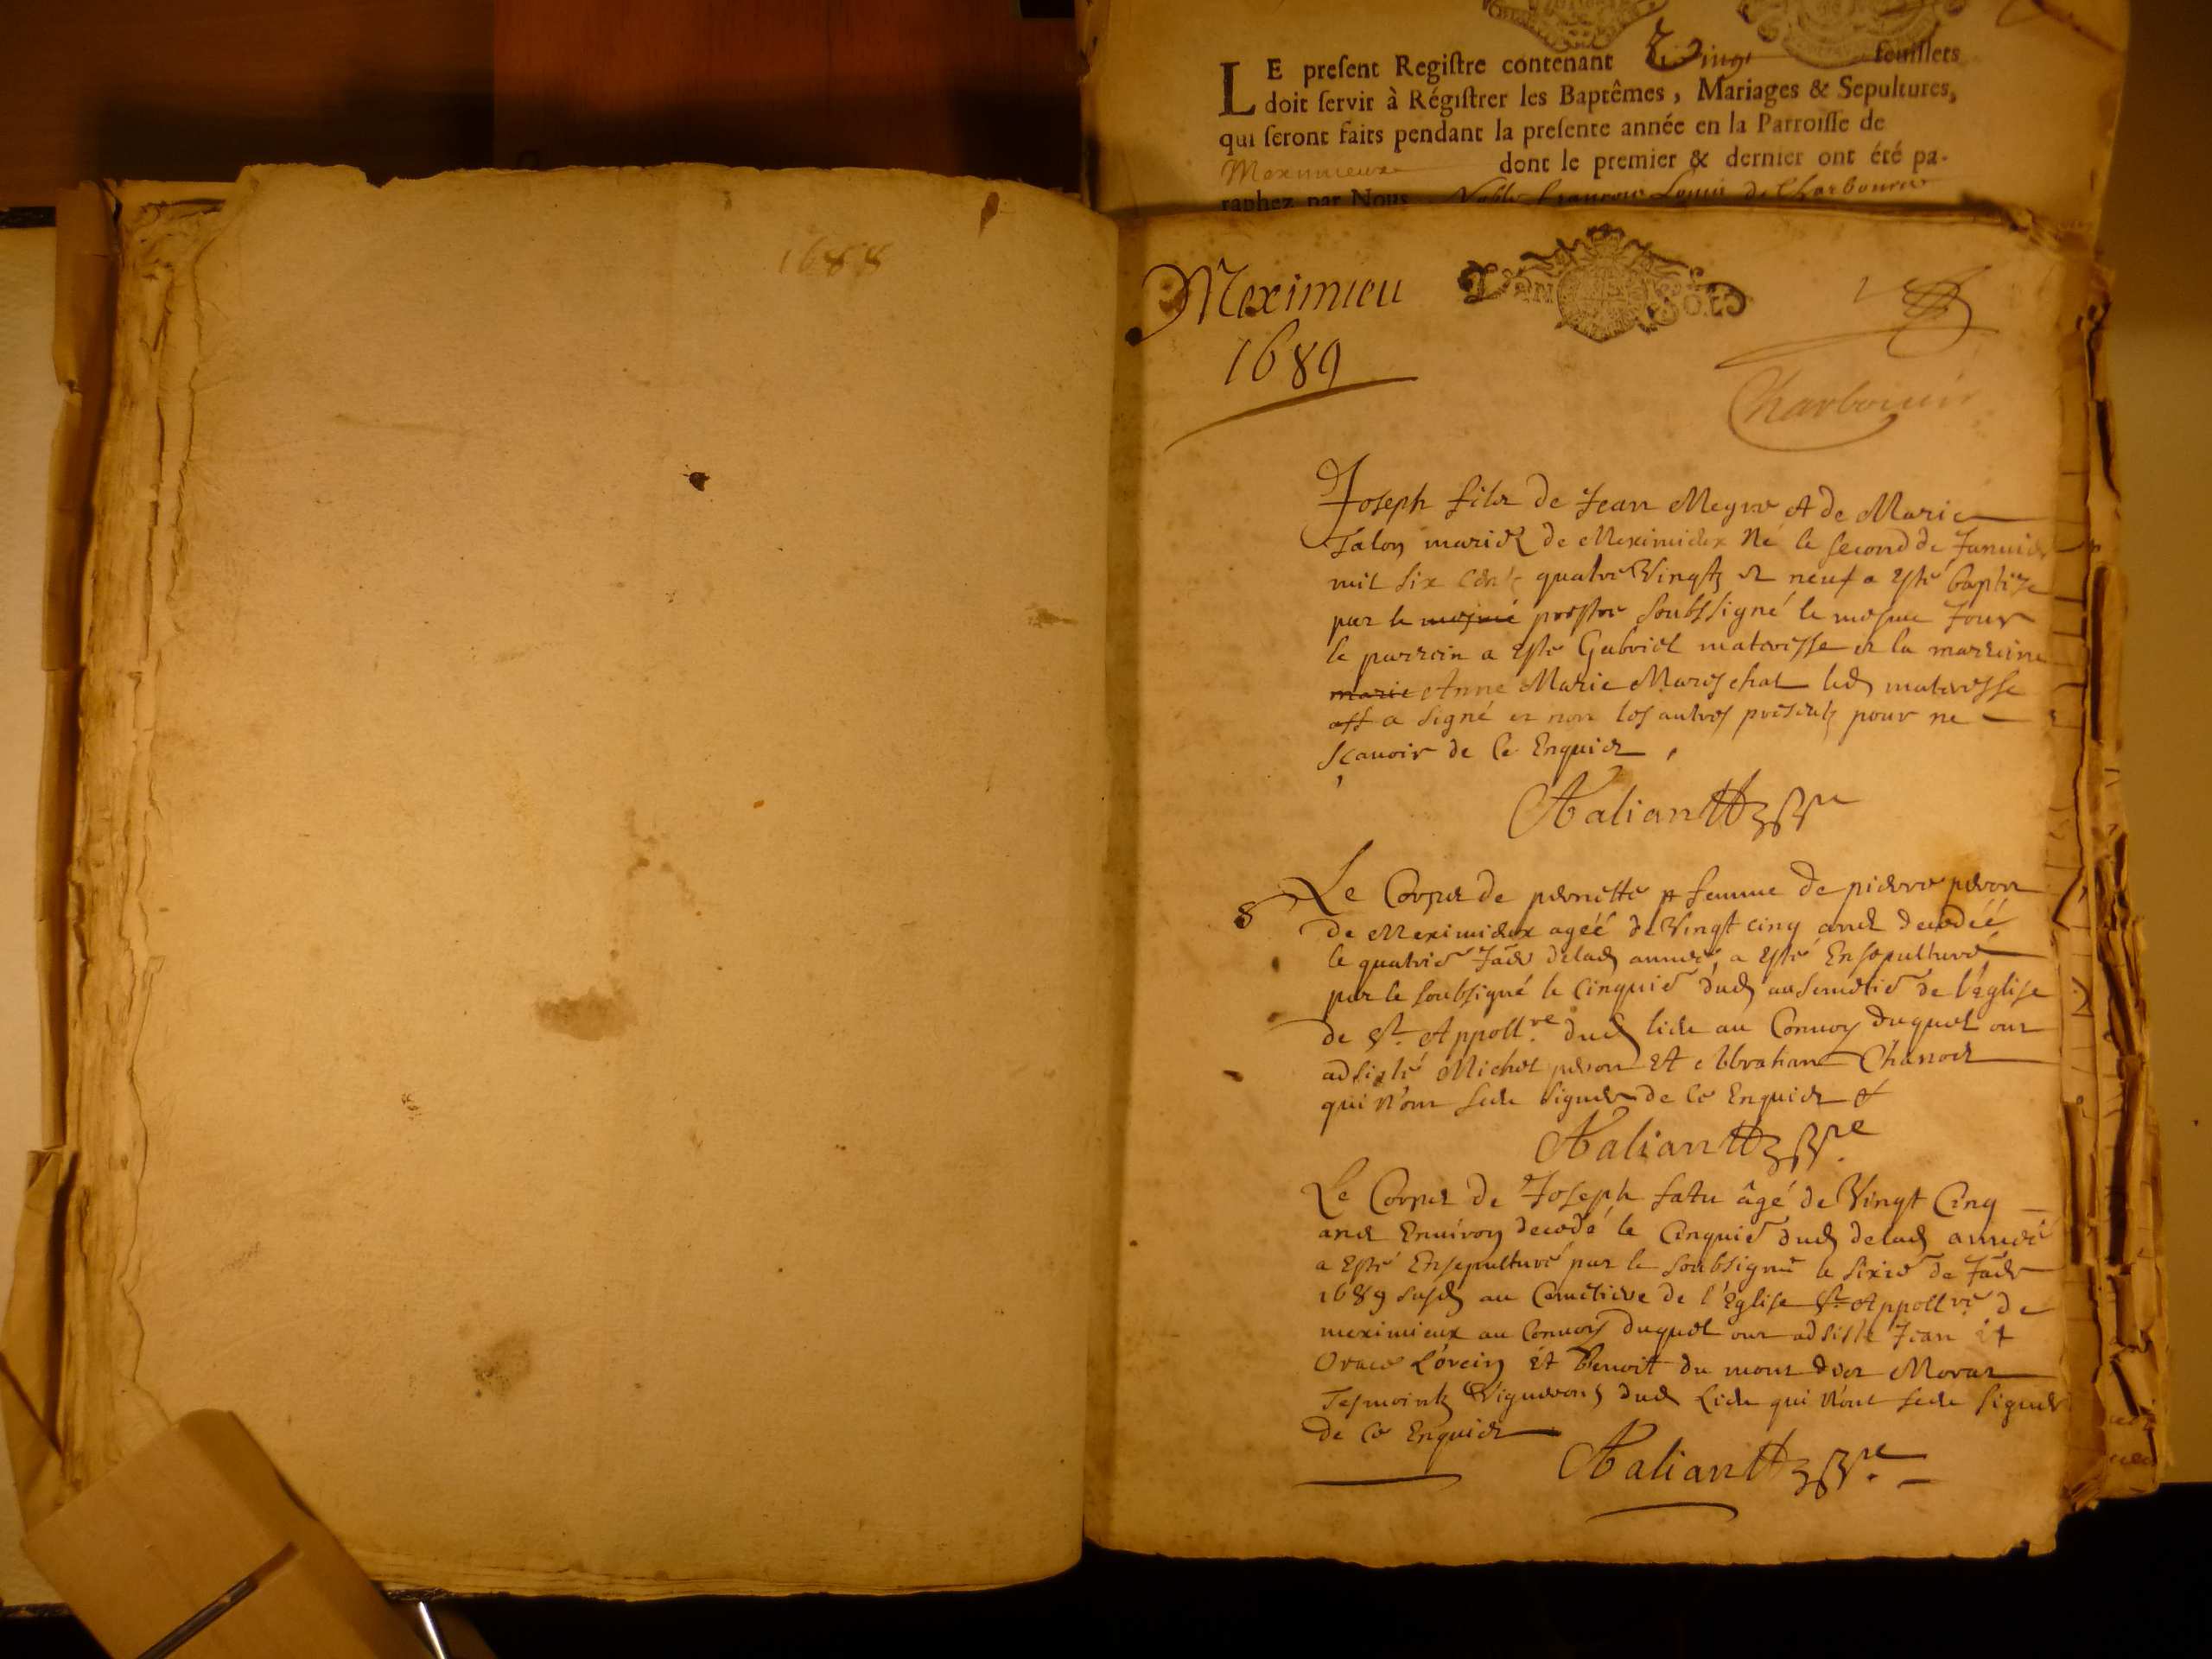 1688
LE present Registre contenant Vingt feuillets
doit servir à Régistrer les Baptêmes, Mariages & Sepultures,
qui seront faits pendant la presente année en la Parroisse de
Meximieux dont le premier & dernier ont été pa-
raphez par Nous Noble françois Louis de Charbonnier
Meximieu
1689
Joseph filz de Jean Meyne et de Marie
Talon mariez de Meximieux Né le second de Januier
mil six centz quatre Vingtz et neuf a esté baptize
par le mesme prestre soubssigné le mesme Jour
le parrain a esté Gabriel materesse et la marraine
marie Anne Marie Mareschal led materesse
a signé et non les autres presentz pour ne
sçauoir de ce Enquis
8 Le Corps de pernette femme de pierre peron
de Meximieux agéé de Vingt cinq ans decedéé
le quatrie Janr delad année a esté Ensepulturé
par le soubsigné le Cinquie dud au semetie de l'église
de St Appollre dud lieu au Conuoy duquel ont
adsisté Michel peron et Abraham Chanoz
qui n'ont sceu signer de ce Enquis
Le Corps de Joseph fatu âgé de Vingt Cinq
ans Enuiron decedé le Cinquie dud delad année
a esté Ensepulturé par le soubsigné le sixie de Janr
1689 susd au Cemetiere de l'Eglise St Appollre de
meximieux au Conuoy duquel ont adsisté Jean et
Lorein et Benoit du mont Morar
Tesmointz Vignerons dud Lieu qui n'ont sceu signer
de ce Enquis